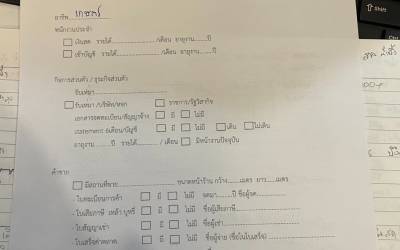 อาชีพ เกษตร
พนักงานประจำ
☐ เงินสด รายได้................./เดือน อายุงาน......ปี
☐ เข้าบัญชี รายได้................./เดือน อายุงาน......ปี
กิจการส่วนตัว / ธุรกิจส่วนตัว
รับเหมา...............................
☐ รับเหมา /บริษัท/หจก ☐ ราชการ/รัฐวิสาหกิจ
เอกสารจดทะเบียน/สัญญาจ้าง ☐ มี ☐ ไม่มี
statement 6เดือน/บัญชี ☐ มี ☐ ไม่มี ☐ เดิน ☐ ไม่เดิน
อายุงาน........ปี รายได้............/ เดือน ☐ มีหน้างานปัจจุบัน
ค้าขาย
☐ มีสถานที่ขาย.........................ขนาดหน้าร้าน กว้าง......เมตร ยาว......เมตร
- ใบทะเบียนการค้า ☐ มี ☐ ไม่มี จดมา......ปี ชื่อผู้จด...............
- ใบเสียภาษี เหล้า บุหรี่ ☐ มี ☐ ไม่มี ชื่อผู้เสียภาษี...............
- ใบสัญญาเช่า ☐ มี ☐ ไม่มี ชื่อผู้เช่า...............
- ใบเสร็จค่าตลาด ☐ มี ☐ ไม่มี ชื่อผู้จ่าย (ชื่อในใบเสร็จ)...............
Shift
Ctrl